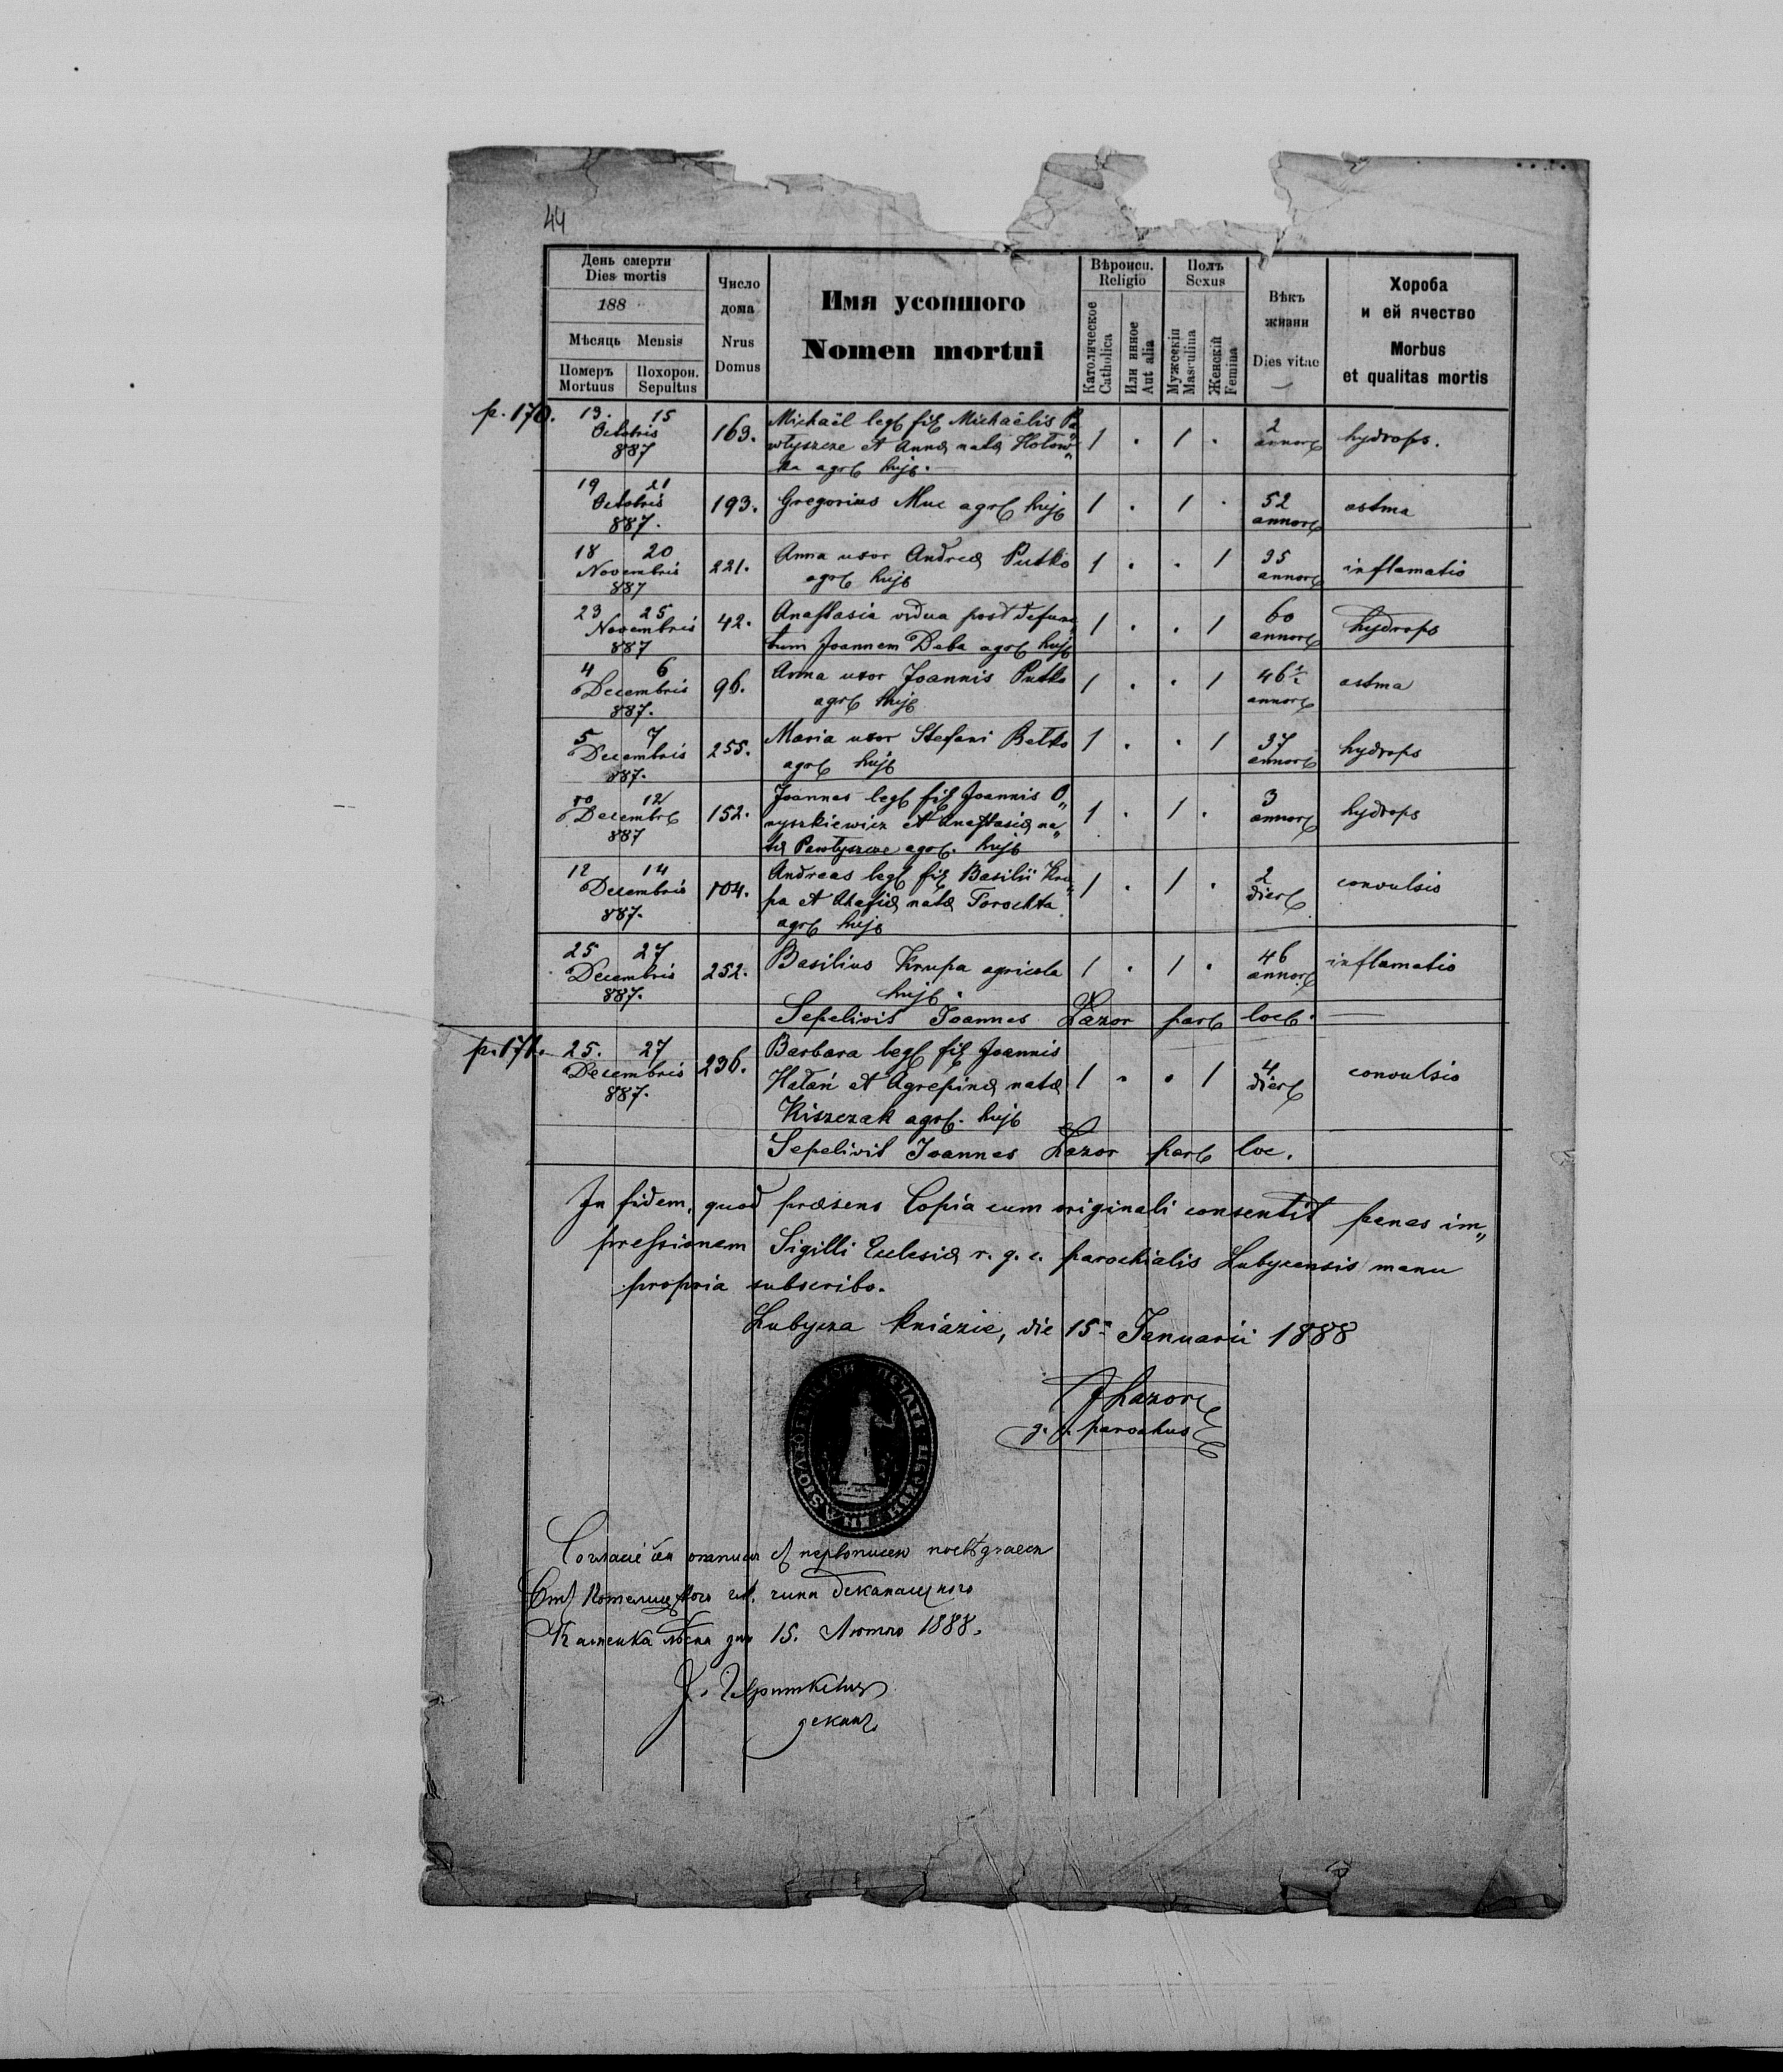 44
День смерти
Dies mortis
188
Мѣсяць Mensis
Померъ Похорон.
Mortuus Sepultus
Число
дома
Nrus
Domus
Имя усопшого
Nomen mortui
Вѣроисп.
Religio
Католическое
Catholica
Или инное
Aut alia
Полъ
Sexus
Мужескій
Masculina
Женскій
Femina
Вѣкъ
жизни
Dies vitae
Хороба
и ей ячество
Morbus
et qualitas mortis
p. 170. 13. 15 Octobris 887 163. Michaël leg fil Michaëlis Pa„ 1 . 1 . 2 annor hydrops.
włyszcze et Annæ natæ Hołow„
ka agr huj.
19 21 Octobris 887. 193. Gregorius Muc agr huj 1 . 1 . 52 annor astma
18 20 Novembris 887 221. Anna uxor Andreæ Putko 1 . . 1 35 annor inflamatio
agr huj
23 25 Novembris 887 42. Anastasia vidua post defunc 1 . . 1 60 annor hydrops
tum Joannem Deba agr huj
4 6 Decembris 887. 96. Anna uxor Joannis Putko 1 . . 1 46½ annor astma
agr huj
5 7 Decembris 887. 255. Maria uxor Stefani Bełko 1 . . 1 37 annor hydrops
agr huj
10 12 Decembr 887 152. Joannes leg fil Joannis O„ 1 . 1 . 3 annor hydrops
nyszkiewicz et Anastasiæ na„
tæ Pawłyszcze agr. huj
12 14 Decembris 887. 104. Andreas leg fil Basilii Kru„ 1 . 1 . 2 dier convulsio
pa et Ahafiæ natæ Torochta
agr huj
25 27 Decembris 887. 252. Basilius Krupa agricola 1 . 1 . 46 annor inflamatio
huj.
Sepelivit Joannes Łazor par loc.
p. 171. 25. 27 Decembris 887. 236. Barbara leg fil Joannis
Hałań et Agrepinæ natæ 1 . . 1 4 dier convulsio
Kiszczak agr. huj
Sepelivit Joannes Łazor par loc.
In fidem, quod præsens Copia cum originali consentit penes im„
pressionem Sigilli Eclesiæ r. g. c. parochialis Lubycensis manu
propria subscribo.
Lubycza kniazie, die 15 Januarii 1888
J Łazor
g. parochus
первописею
15. Лютого 1888.
деканъ